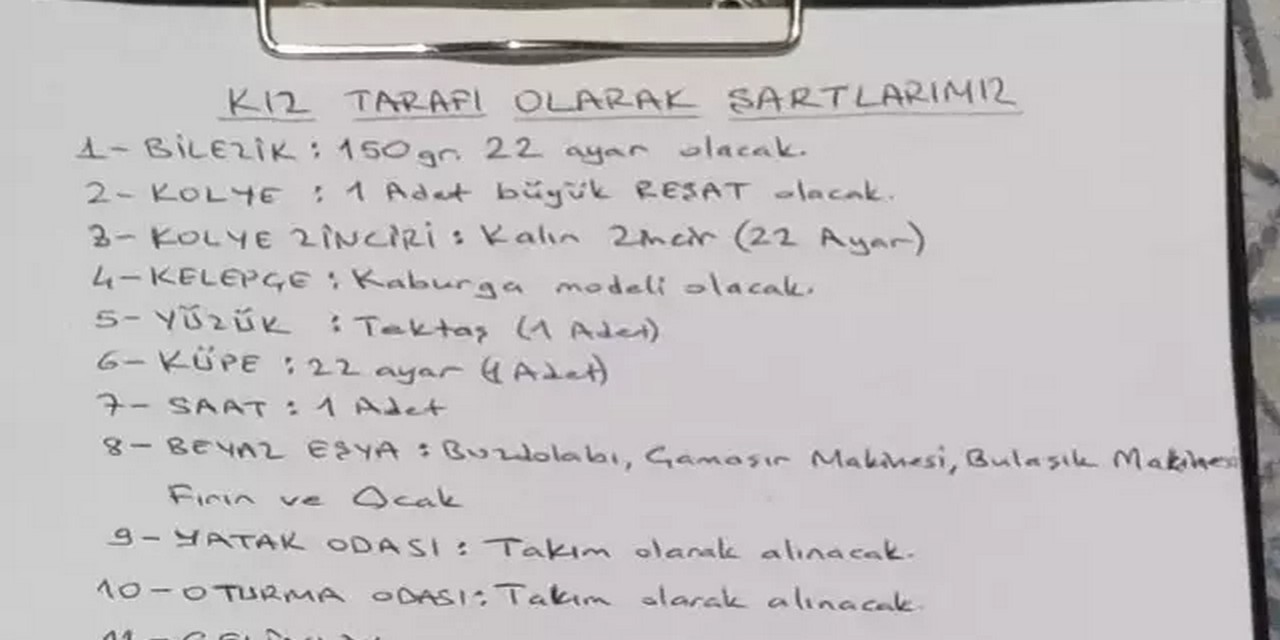 KIZ TARAFI OLARAK ŞARTLARIMIZ
1- BİLEZİK : 150 gr. 22 ayar olacak.
2- KOLYE : 1 Adet büyük REŞAT olacak.
3- KOLYE ZİNCİRİ : Kalın zincir (22 Ayar)
4- KELEPÇE : Kaburga modeli olacak.
5- YÜZÜK : Tektaş (1 Adet)
6- KÜPE : 22 ayar (1 Adet)
7- SAAT : 1 Adet
8- BEYAZ EŞYA : Buzdolabı, Çamaşır Makinesi, Bulaşık Makinesi
Fırın ve Ocak
9- YATAK ODASI : Takım olarak alınacak.
10- OTURMA ODASI : Takım olarak alınacak.